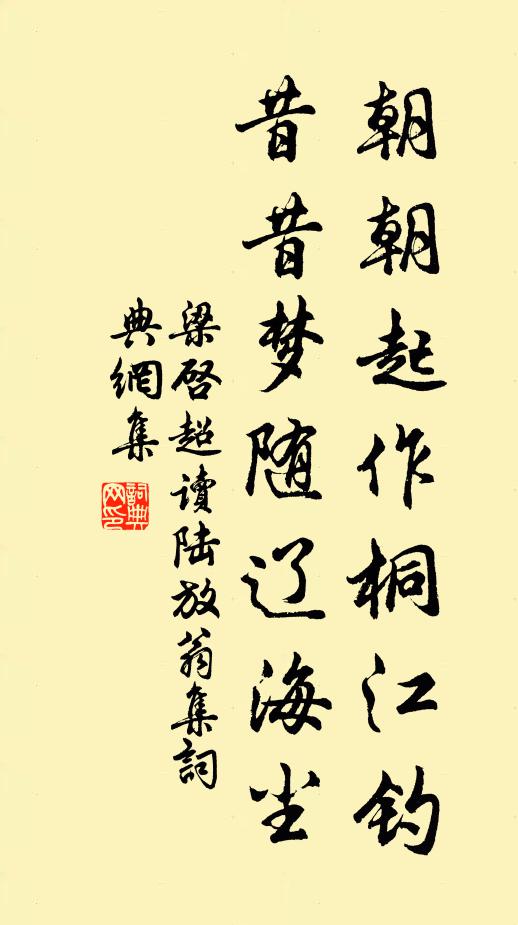 朝朝起作桐江钓
昔昔梦随辽海尘
梁启超读陆放翁集詞
典網集
詞典網印